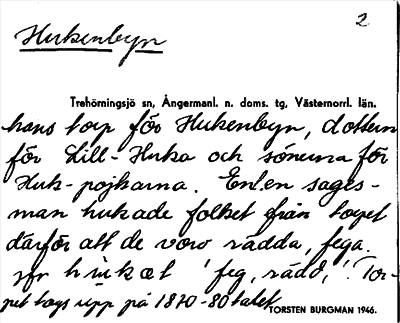 Hukenbyn
2
Trehörningsjö sn, Ångermanl. n. doms. tg, Västernorrl. län.
hans torp för Hukenbyn, dottern
för Lill-Huka och sönerna för
Huk-pojkarna. Enl. en sages-
man hukade folket från torpet
därför att de voro rädda, fega.
jfr hukat 'feg, rädd,'. Tor-
pet togs upp på 1870-80 talet
TORSTEN BURGMAN 1946.